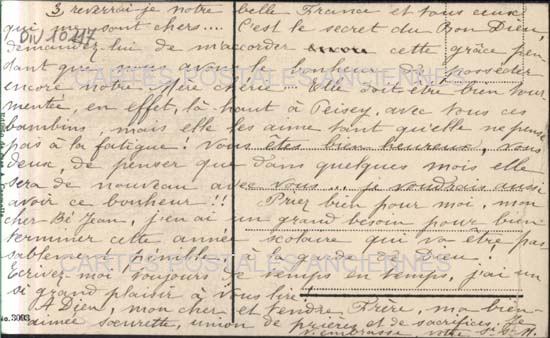 3 reverrai-je notre belle France et tous ceux
qui me sont chers.... C'est le secret du Bon Dieu,
DIV 10217
demandez lui de m'accorder encore cette grâce pen-
dant que nous avons le bonheur de posséder
CARTES POSTALES ANCIENNES
encore notre Mère chérie ... Elle doit être bien tour-
mentée, en effet, là haut à Peisey, avec tous ces
bambins, mais elle les aime tant qu'elle ne pense
pas à la fatigue! Vous êtes bien heureux, vous
deux, de penser que dans quelques mois elle
sera de nouveau avec vous ... je voudrais aussi
avoir ce bonheur!! Priez bien pour moi, mon
cher Bé Jean, j'en ai un grand besoin pour bien
terminer cette année scolaire qui va être pas
sablement pénible à la garde de Dieu!
CARTES POSTALES ANCIENNES
Écrivez moi toujours de temps en temps, j'ai un
si grand plaisir à vous lire!
A Dieu, mon cher et tendre Frère, ma bien-
aimée sœurette, union de prières et de sacrifices. Je
vous embrasse, votre
3093